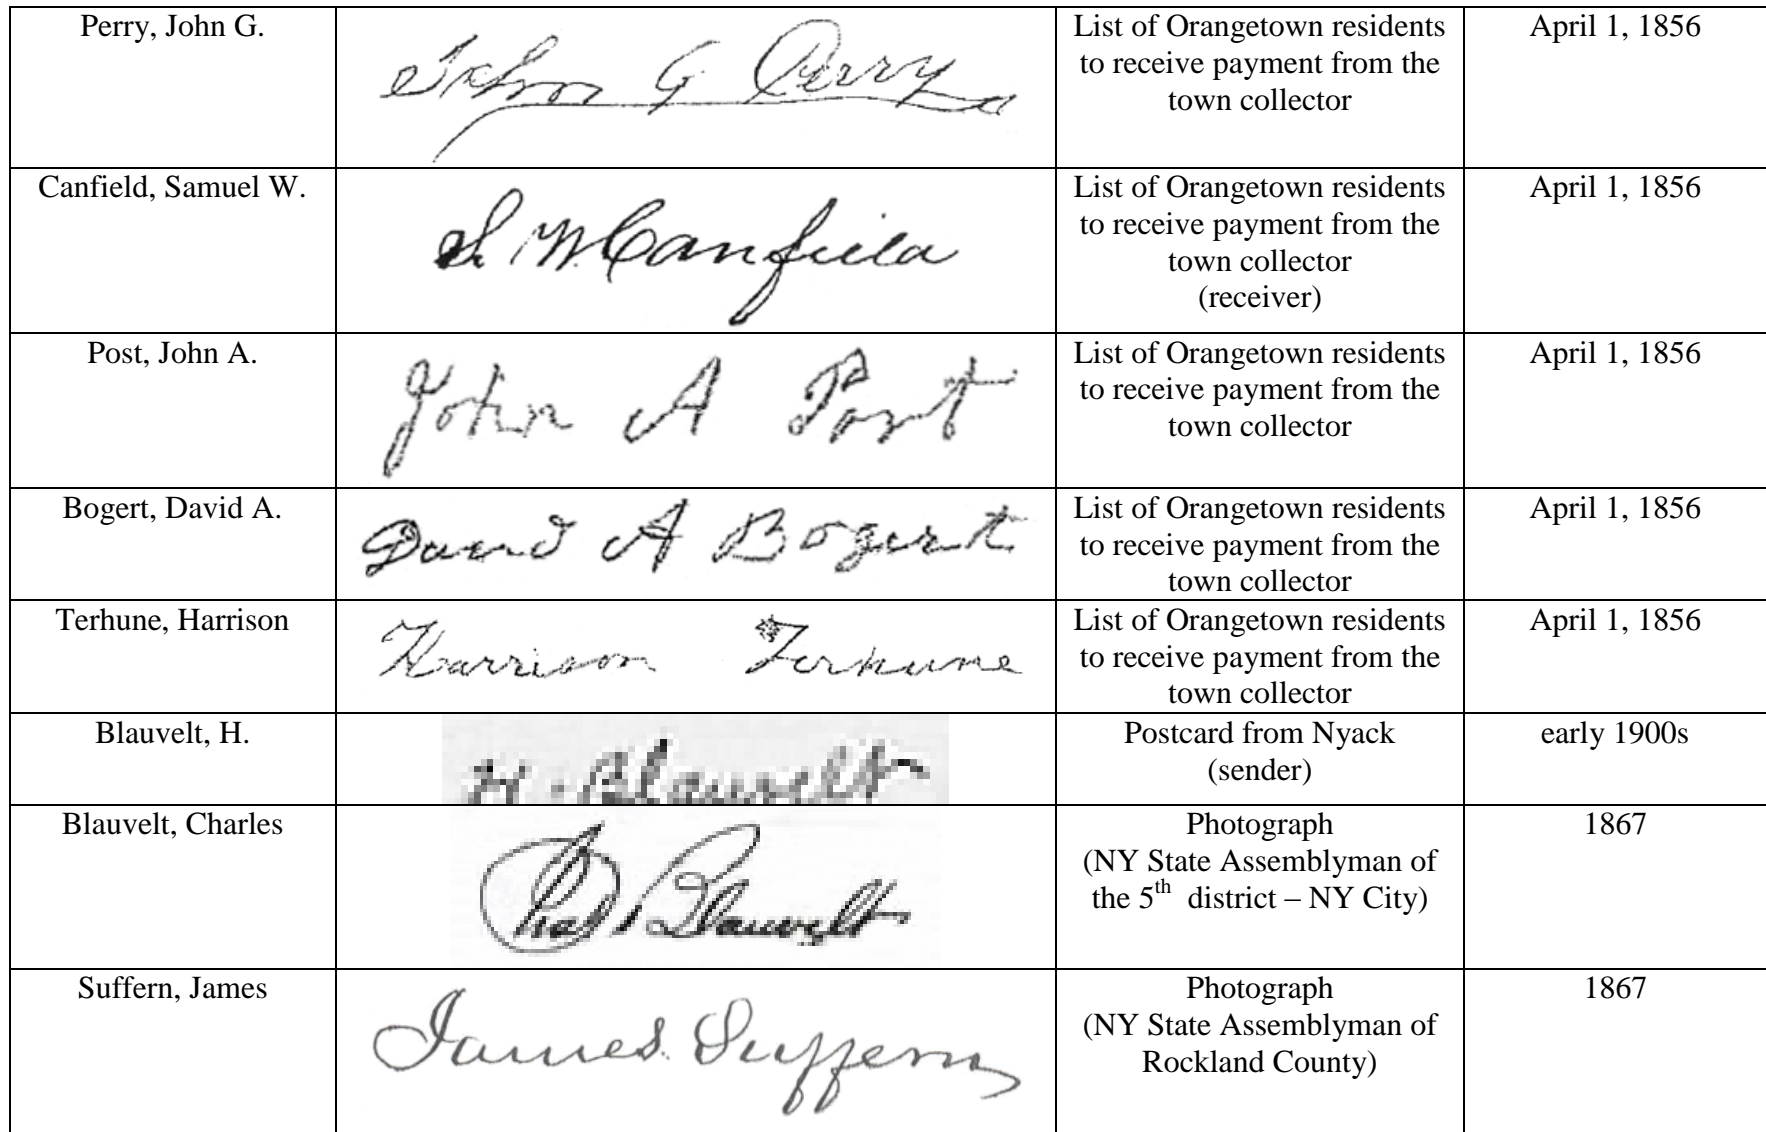 Perry, John G.
John G. Perry
List of Orangetown residents
to receive payment from the
town collector
April 1, 1856
Canfield, Samuel W.
S. W. Canfield
List of Orangetown residents
to receive payment from the
town collector
(receiver)
April 1, 1856
Post, John A.
John A Post
List of Orangetown residents
to receive payment from the
town collector
April 1, 1856
Bogert, David A.
David A Bogert
List of Orangetown residents
to receive payment from the
town collector
April 1, 1856
Terhune, Harrison
Harrison Terhune
List of Orangetown residents
to receive payment from the
town collector
April 1, 1856
Blauvelt, H.
H. Blauvelt
Postcard from Nyack
(sender)
early 1900s
Blauvelt, Charles
Chas Blauvelt
Photograph
(NY State Assemblyman of
the 5th district – NY City)
1867
Suffern, James
James Suffern
Photograph
(NY State Assemblyman of
Rockland County)
1867